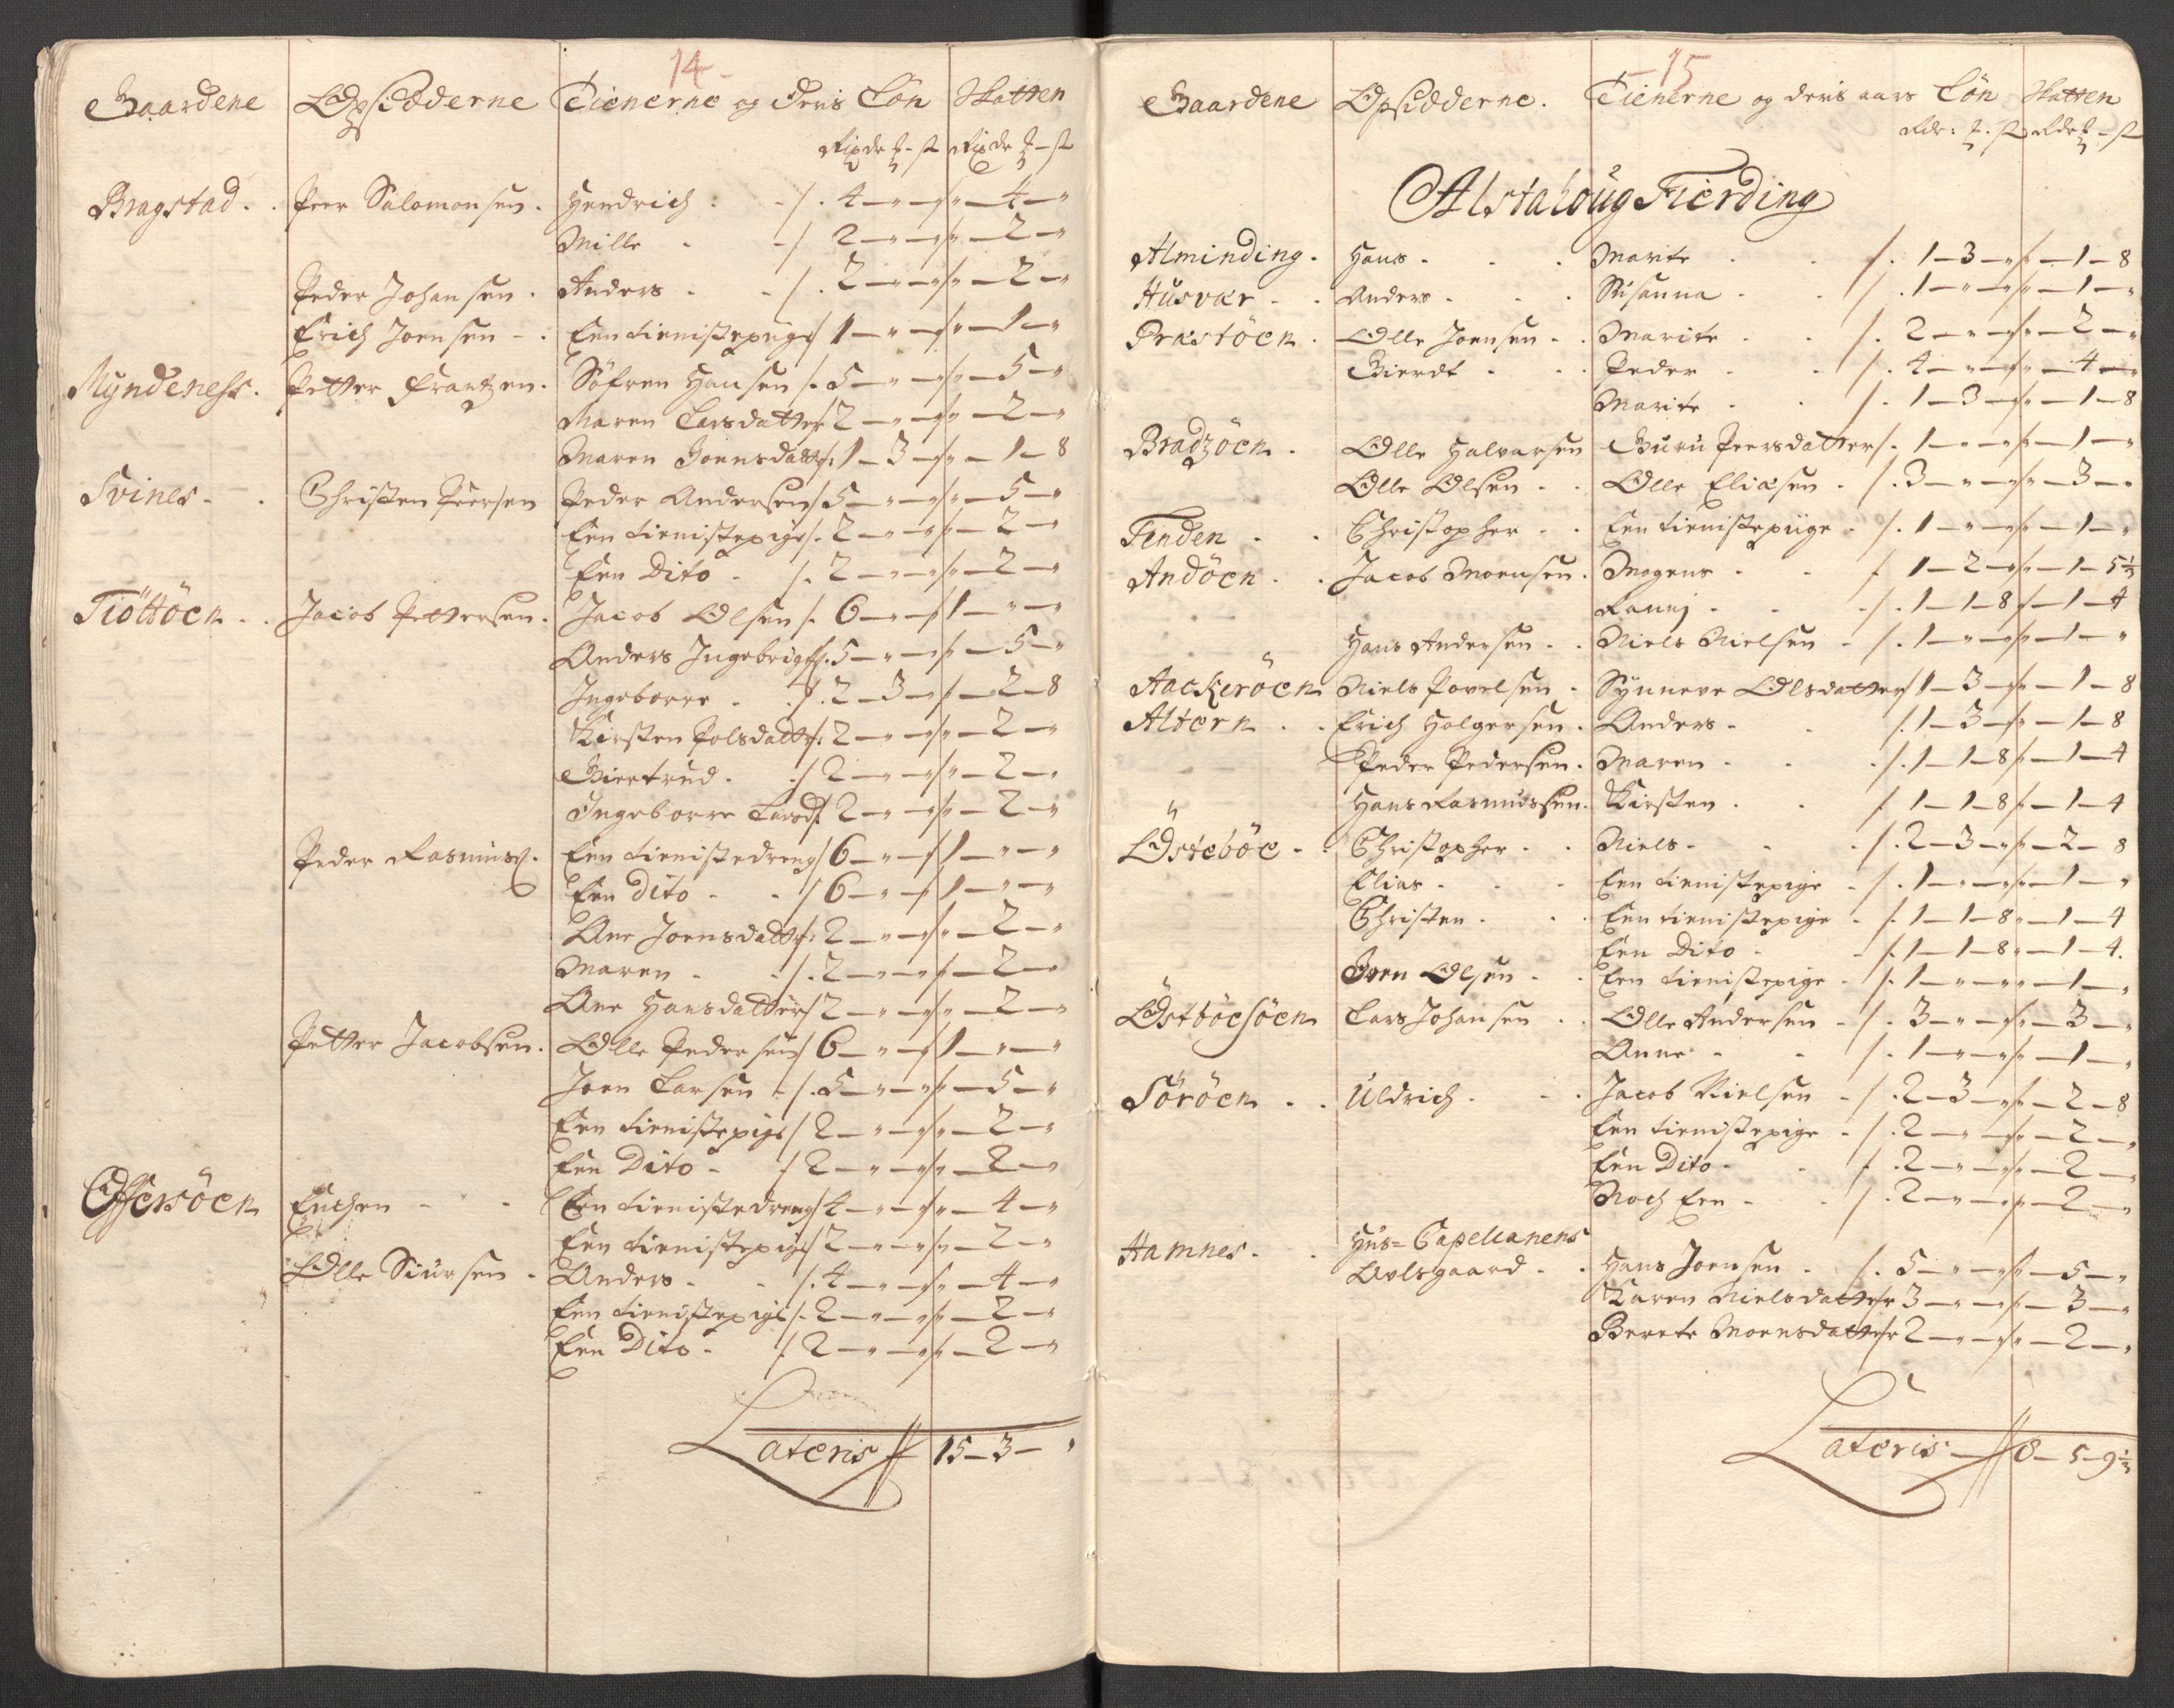 14
Gaardene Opsidderne Tienerne og deris Løn Skatten
Rixdr ƺ - ß Rixdr ƺ - ß
Bragstad . . Peer Salomonsen . Hendrich . - /. 4 — " — " /" — 4 — "
Mille - - / 2 — " — " /" — 2 — "
Peder Johansen . Anders - - /. 2 — " — " /" — 2 — "
Erich Joensen - . Een tienistepige / 1 — " — " /" — 1 — "
Myndeness . Petter Frantzen . Söfren Hansen /. 5 — " — " /" — 5 — "
Maren Larsdatter 2 — " — " /" — 2 — "
Maren Joensdatter 1 — 3 — " /" — 1 — 8
Svines - . Christen Peersen Peder Andersen /. 5 — " — " /" — 5 — "
Een tienistepige /. 2 — " — " /" — 2 — "
Een Dito - /. 2 — " — " /" — 2 — "
Tiöttöen . . Jacob Pettersen . Jacob Olsen /. 6 — " — " / 1 — " — "
Anders Ingebrigts: 5 — " — " /" — 5 — "
Ingeborre - . /. 2 — 3 — " /" — 2 — 8
Kirsten Polsdatter 2 — " — " /" — 2 — "
Giertrud . . / 2 — " — " /" — 2 — "
Ingeborre Larsd: 2 — " — " /" — 2 — "
Peder Rasmus: Een tienistedreng / 6 — " — " / 1 — " — "
Een Dito - . / 6 — " — " / 1 — " — "
Ane Joensdatter 2 — " — " /" — 2 — "
Maren - . /. 2 — " — " /" — 2 — "
Ane Hansdatter / 2 — " — " /" — 2 — "
Petter Jacobsen . Olle Pedersen / 6 — " — " / 1 — " — "
Joen Larsen - /. 5 — " — " /" — 5 — "
Een tienistepige / 2 — " — " /" — 2 — "
Een Dito - . / 2 — " — " /" — 2 — "
Offersöen - - Een tienistedreng / 4 — " — " /" — 4 — "
Een tienistepige / 2 — " — " /" — 2 — "
Olle Siursen - Anders - - /. 4 — " — " /" — 4 — "
Een tienistepige /. 2 — " — " /" — 2 — "
Een Dito - /. 2 — " — " /" — 2 — "
Lateris 15 — 3 — "
15
Gaardene Opsidderne . Tienerne og deris aars Løn Skatten
Rdr: ƺ . ß Rdr ƺ - ß
Alstahoug Fierding
Alminding . Hans - - . Marite - . /. 1 — 3 — " /" — 1 — 8
Husvær - . Anders - - . Susanna - . /. 1 — " — " /" — 1 — "
Præstöen . Olle Joensen - . Marite - . /. 2 — " — " /" — 2 — "
Gierdt - - . Peder - . /. 4 — " — " /" — 4 — "
Marite - . /. 1 — 3 — " /" — 1 — 8
Bradzöen . Olle Halvarsen Guru Peersdatter /. 1 — " — " /" — 1 — "
Olle Olsen - . Olle Eliæsen . /. 3 — " — " /" — 3 — "
Tenden - . Christopher - . Een tienistepiige - /. 1 — " — " /" — 1 — "
Andöen - . Jacob Moensen . Mogens - . / 1 — 2 — " /" — 1 — 5 1/3
Ranej - - - /. 1 — 1 — 8 / — 1 — 4
Hans Andersen - . Niels Nielsen - /. 1 — " — " /" — 1 — "
Aackeröen Niels Povelsen - Synneve Olsdatter / 1 — 3 — " /" — 1 — 8
Alteren . . Erich Holgersen . Anders - . /. 1 — 3 — " /" — 1 — 8
Peder Pedersen . Maren - . . /. 1 — 1 — 8 /" — 1 — 4
Hans Rasmussen . Kirsten . . / 1 — 1 — 8 /" — 1 — 4
Östeböe - . Christopher - . Niels - - . /. 2 — 3 — " /" — 2 — 8
Elias - - - Een tienistepige - /. 1 — " — " /" — 1 — "
Christen - . . Een tienistepige - /. 1 — 1 — 8 " — 1 — 4
Een Dito - - /. 1 — 1 — 8 " — 1 — 4.
Iven Olsen - . Een tienistepige - /. 1 — " — " " — 1 — "
Östböesöen Lars Johansen . . Olle Andersen - /. 3 — " — " /" — 3 — "
Anne - - /. 1 — " — " /" — 1 — "
Söröen - . Uldrich - - . Jacob Nielsen - /. 2 — 3 — " /" — 2 — 8
Een tienistepige - /. 2 — " — " /" — 2 — "
Een Dito - . /. 2 — " — " /" — 2 — "
Noch Een - - /. 2 — " — " /" — 2 — "
Hamnes - . Hus= Capellanens
Avlsgaard - . Hans Joensen . /. 5 — " — " /" — 5 — "
Karen Nielsdatter 3 — " — " /" — 3 — "
Berete Moensdatter 2 — " — " /" — 2 — "
Lateris 8 — 5 — 9 1/3